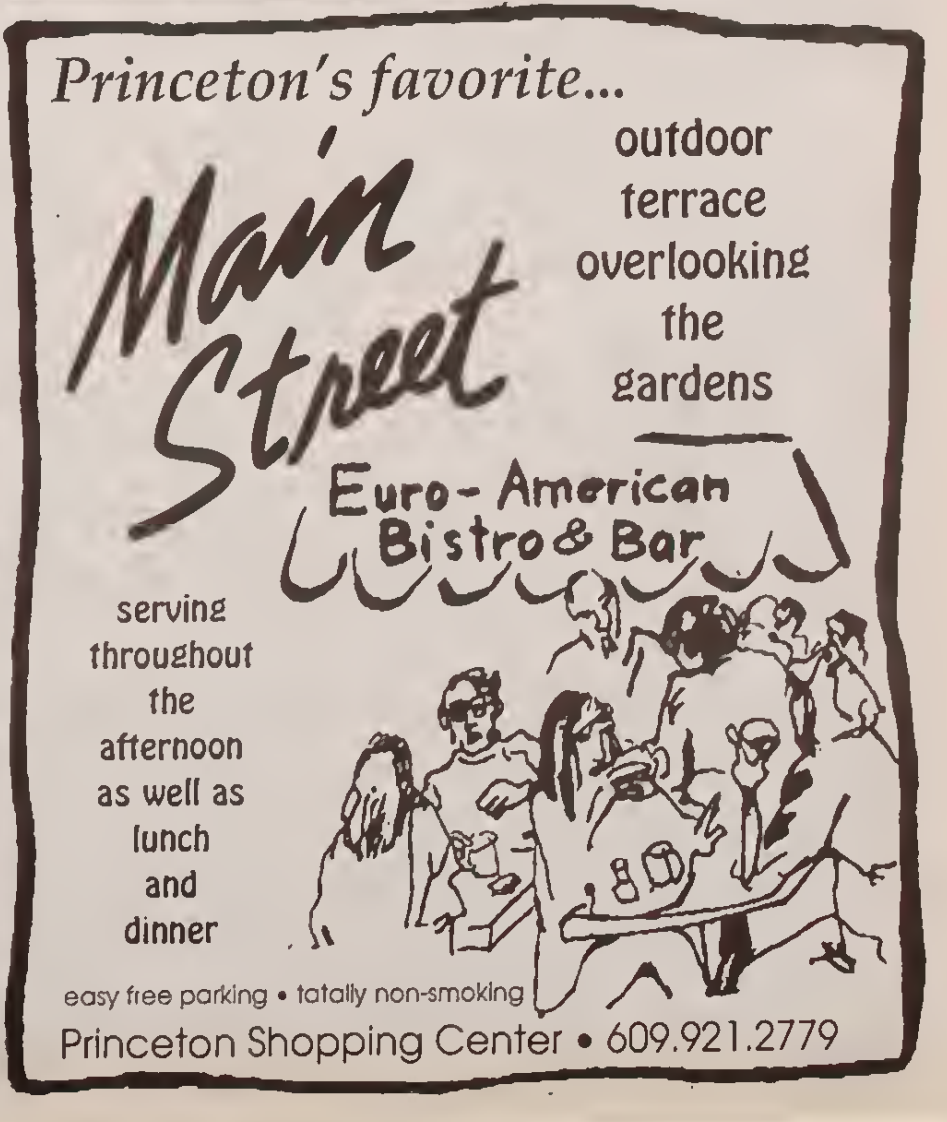 Princeton's favorite...
Main
Street
outdoor
terrace
overlooking
the
gardens
Euro-American
Bistro & Bar
serving
throughout
the
afternoon
as well as
lunch
and
dinner
easy free parking • tatally non-smoking
Princeton Shopping Center • 609.921.2779